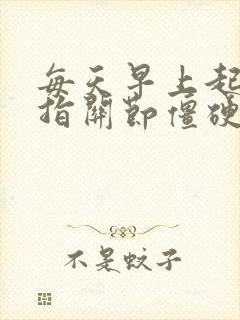 每天早上起
指關節僵硬
不是蚊子